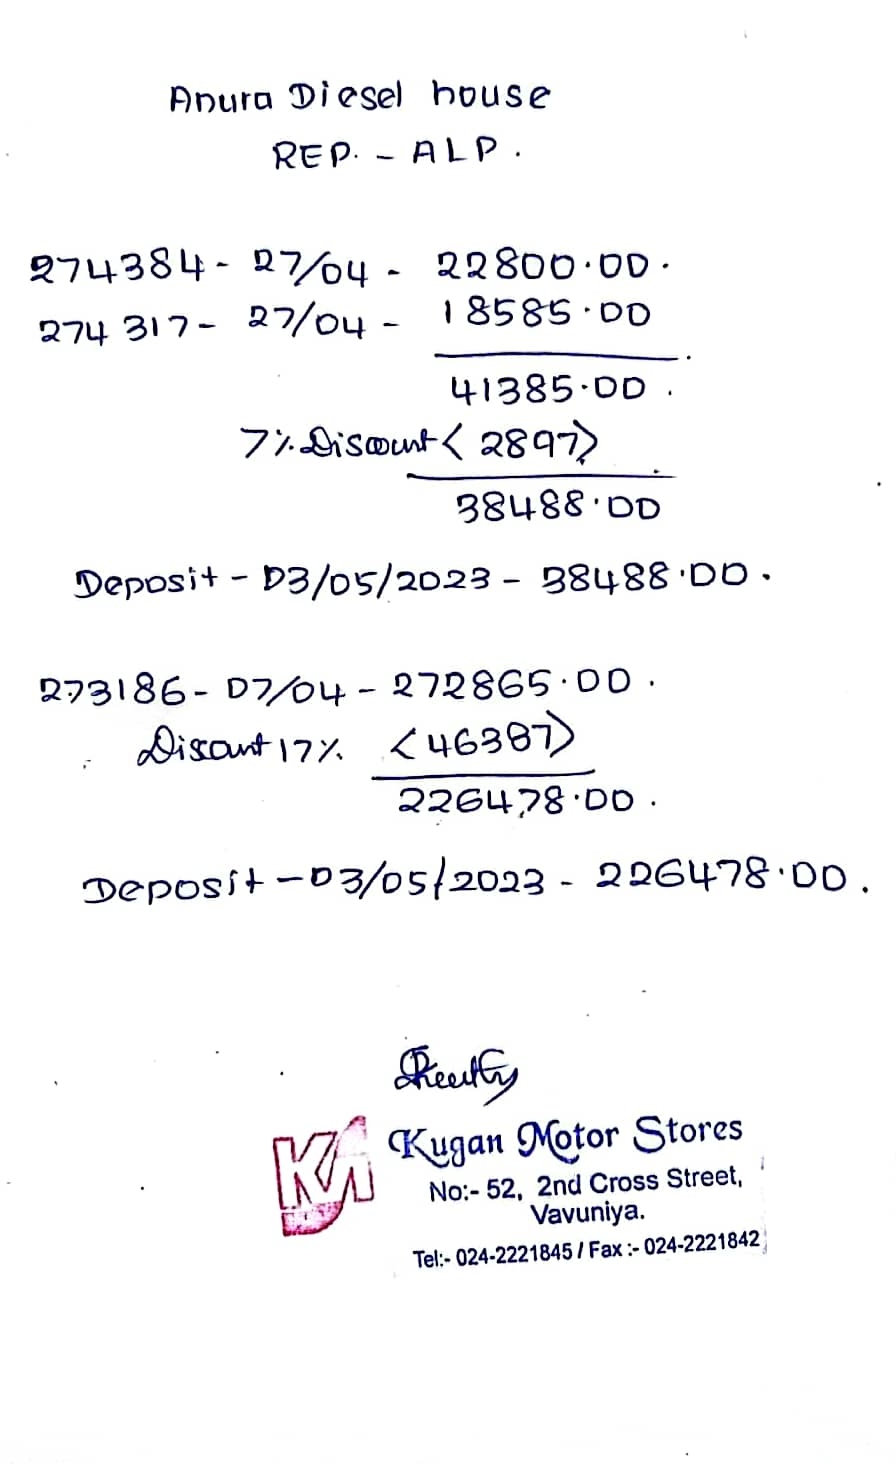 Anura Diesel house
REP. - ALP.
274384 - 27/04 - 22800.00.
274317 - 27/04 - 18585.00
41385.00.
7% Discount < 2897>
38488.00
Deposit - 03/05/2023 - 38488.00.
273186 - 07/04 - 272865.00.
Discount 17% <46387>
226478.00.
Deposit - 03/05/2023 - 226478.00.
KM
Kugan Motor Stores
No:- 52, 2nd Cross Street,
Vavuniya.
Tel:- 024-2221845 / Fax :- 024-2221842